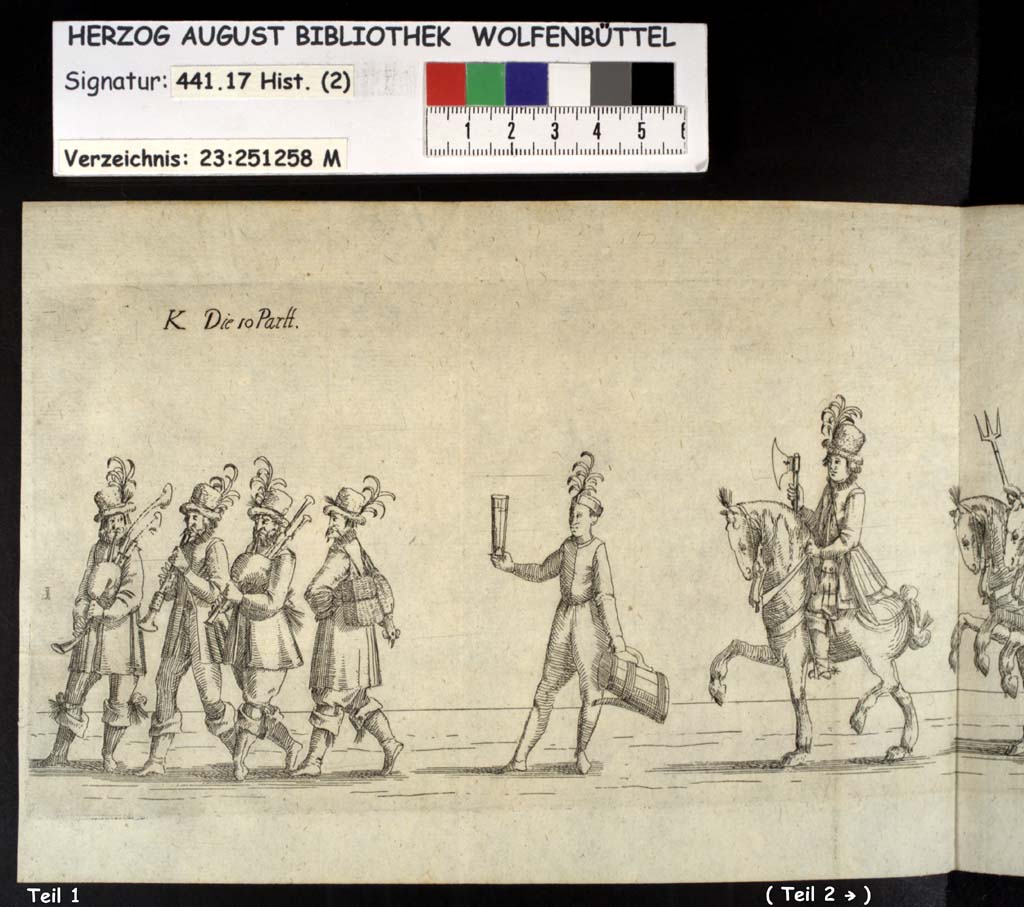 HERZOG AUGUST BIBLIOTHEK WOLFENBÜTTEL
Signatur: 441.17 Hist. (2)
1 2 3 4 5 6
Verzeichnis: 23:251258 M
K Die 10 Partt.
Teil 1
( Teil 2 → )